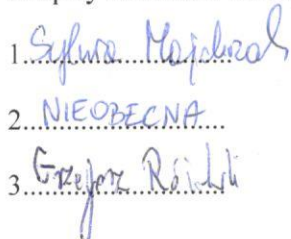 1. Sylwia Majchrzak
2. NIEOBECNA
3. Grzegorz